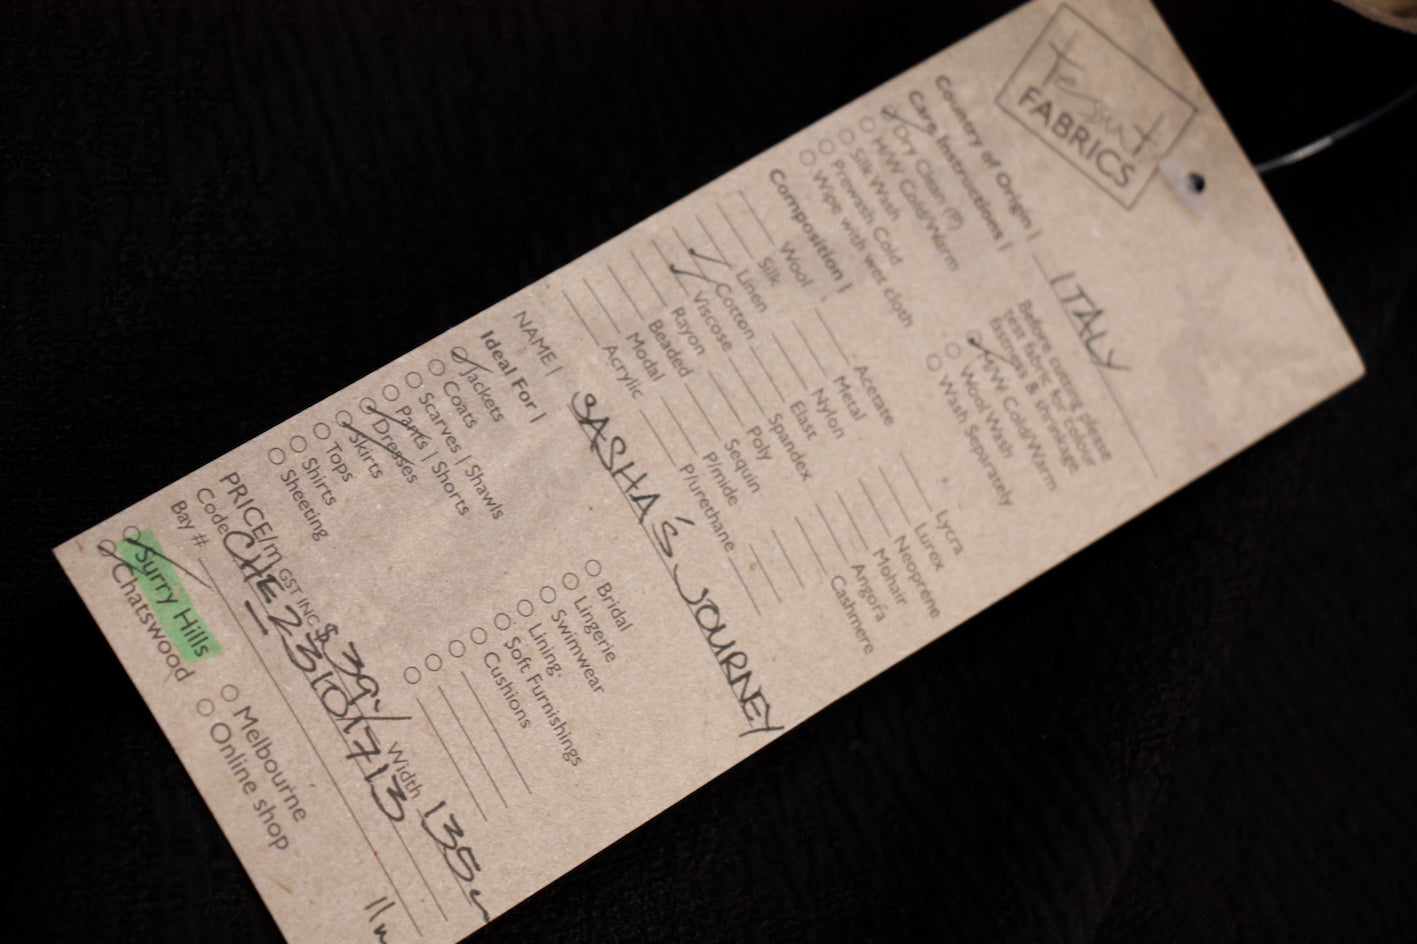 Tessuti
FABRICS
Country of Origin | ITALY
Care Instructions |
Dry Clean (P)
H/W Cold/Warm
Silk Wash
Prewash Cold
Wipe with wet cloth
Before cutting please
test fabric for colour
fastness & shrinkage.
H/W Cold/Warm
Wool Wash
Wash Separately
Composition |
Wool
Silk
Linen
Cotton
Viscose
Rayon
Beaded
Modal
Acrylic
Acetate
Metal
Nylon
Elast
Spandex
Poly
Sequin
P/mide
P/urethane
Lycra
Lurex
Neoprene
Mohair
Angora
Cashmere
NAME | SASHA'S JOURNEY
Ideal For |
Jackets
Coats
Scarves | Shawls
Pants | Shorts
Dresses
Skirts
Tops
Shirts
Sheeting
Bridal
Lingerie
Swimwear
Lining
Soft Furnishings
Cushions
PRICE/m GST INC $39 Width 135
Code CHE_231017713
Bay #
Surry Hills
Chatswood
Melbourne
Online shop